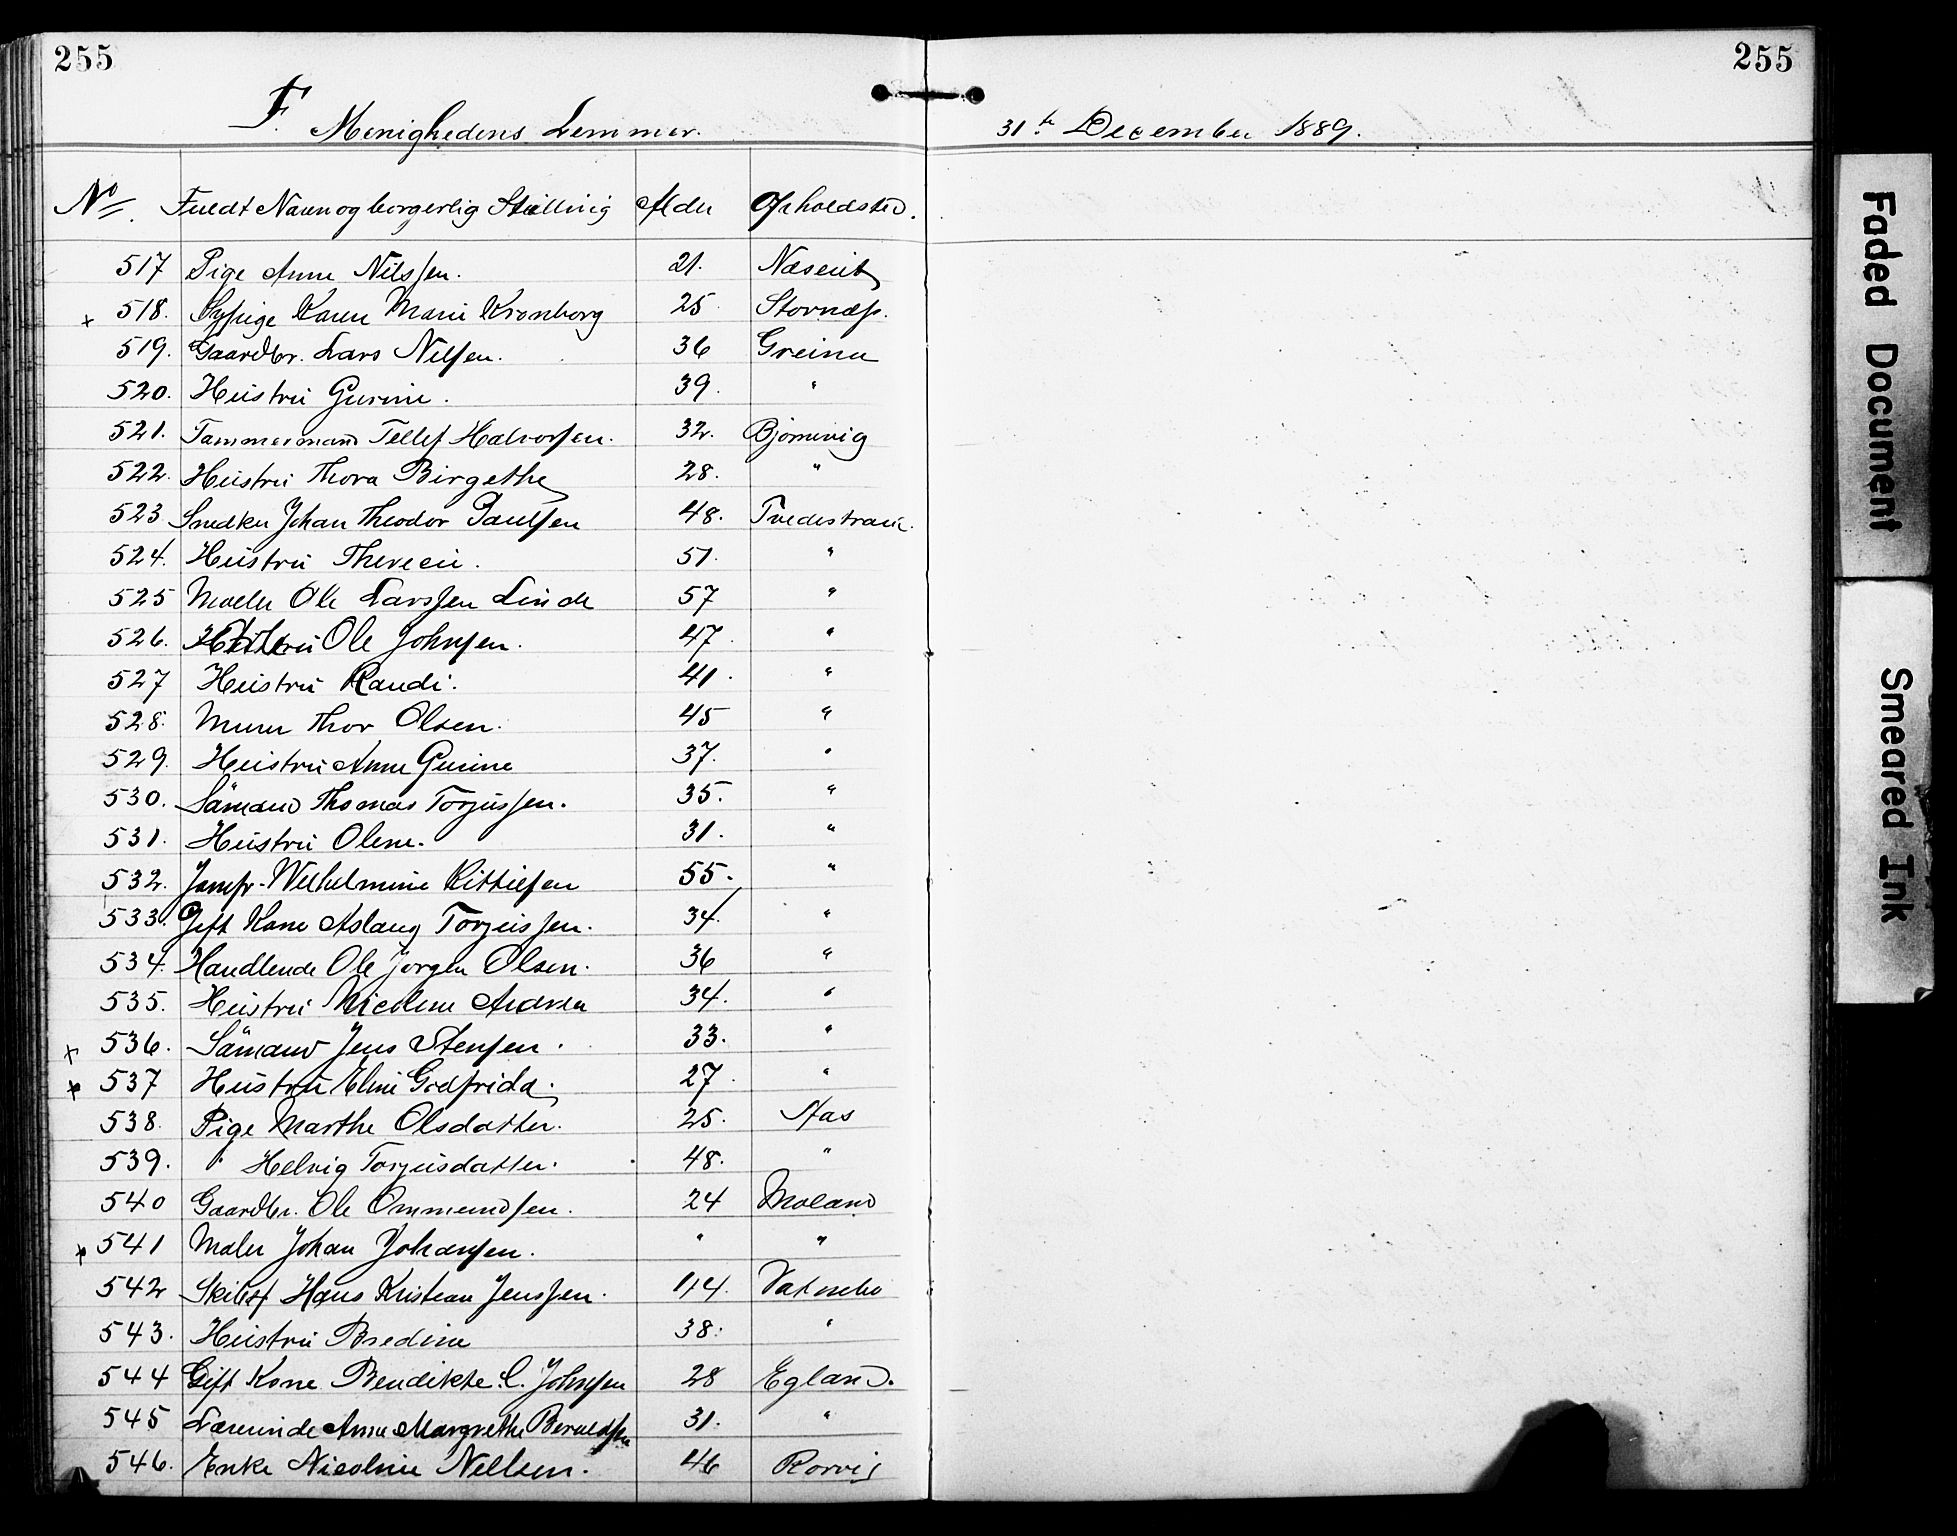 255 255
F. Menighedens Lemmer. 31te December 1889.
No Fuldt Navn og borgerlig Stilling Alder Opholdsted.
517 Pige Anne Nilssen. 21.
+ 518. Sypige Karen Marie Kronborg 25 Stornæss.
519. Gaardbr. Lars Nilsen. 36 Greinu
520. Hustru Gurine. 39. "
521. Tømmermand Tellef Halvorsen. 32. Bjørnevig
522. Hustru Thora Birgethe 28. "
523 Snedker Johan Theodor Paulsen 48. Tvedestrand.
524. Hustru 51. "
525 Maler Ole Larssen Linde 57 "
526. Ole Johnsen. 47. "
527 Hustru Randi. 41. "
528. Murer Thor Olsen. 45 "
529. Hustru Anne Gurine 37. "
530. Sömand Thomas Torjussen. 35. "
531. Hustru Olene. 31. "
532. Jomfr. Wilhelmine Kittilsen 55. "
533. Gift Kone Aslaug Torjussen. 34. "
534. Handlende Ole Jørgen Olsen. 36 "
535. Hustru Nicoline Andrea 34. "
+ 536. Sömand Jens Stensen. 33. "
+ 537 Hustru Eline Godfrida. 27. "
538. Pige Marthe Olsdatter. 25. Aas
539. " Helvig Torjusdatter. 48. "
540 Gaardbr. Ole Ommundsen. 24 Moland
+ 541 Maler Johan Johansen. " "
542 Hans Kristian Jenssen. 44.
543. Hustru Bredine 38. "
544 Gift Kone Bendikte C. Johnsen 28 Egland.
545 Lærerinde Anne Margrethe 31. "
546. Enke Nicoline Nellsen. 46 Rørvig
Faded Document
Smeared Ink